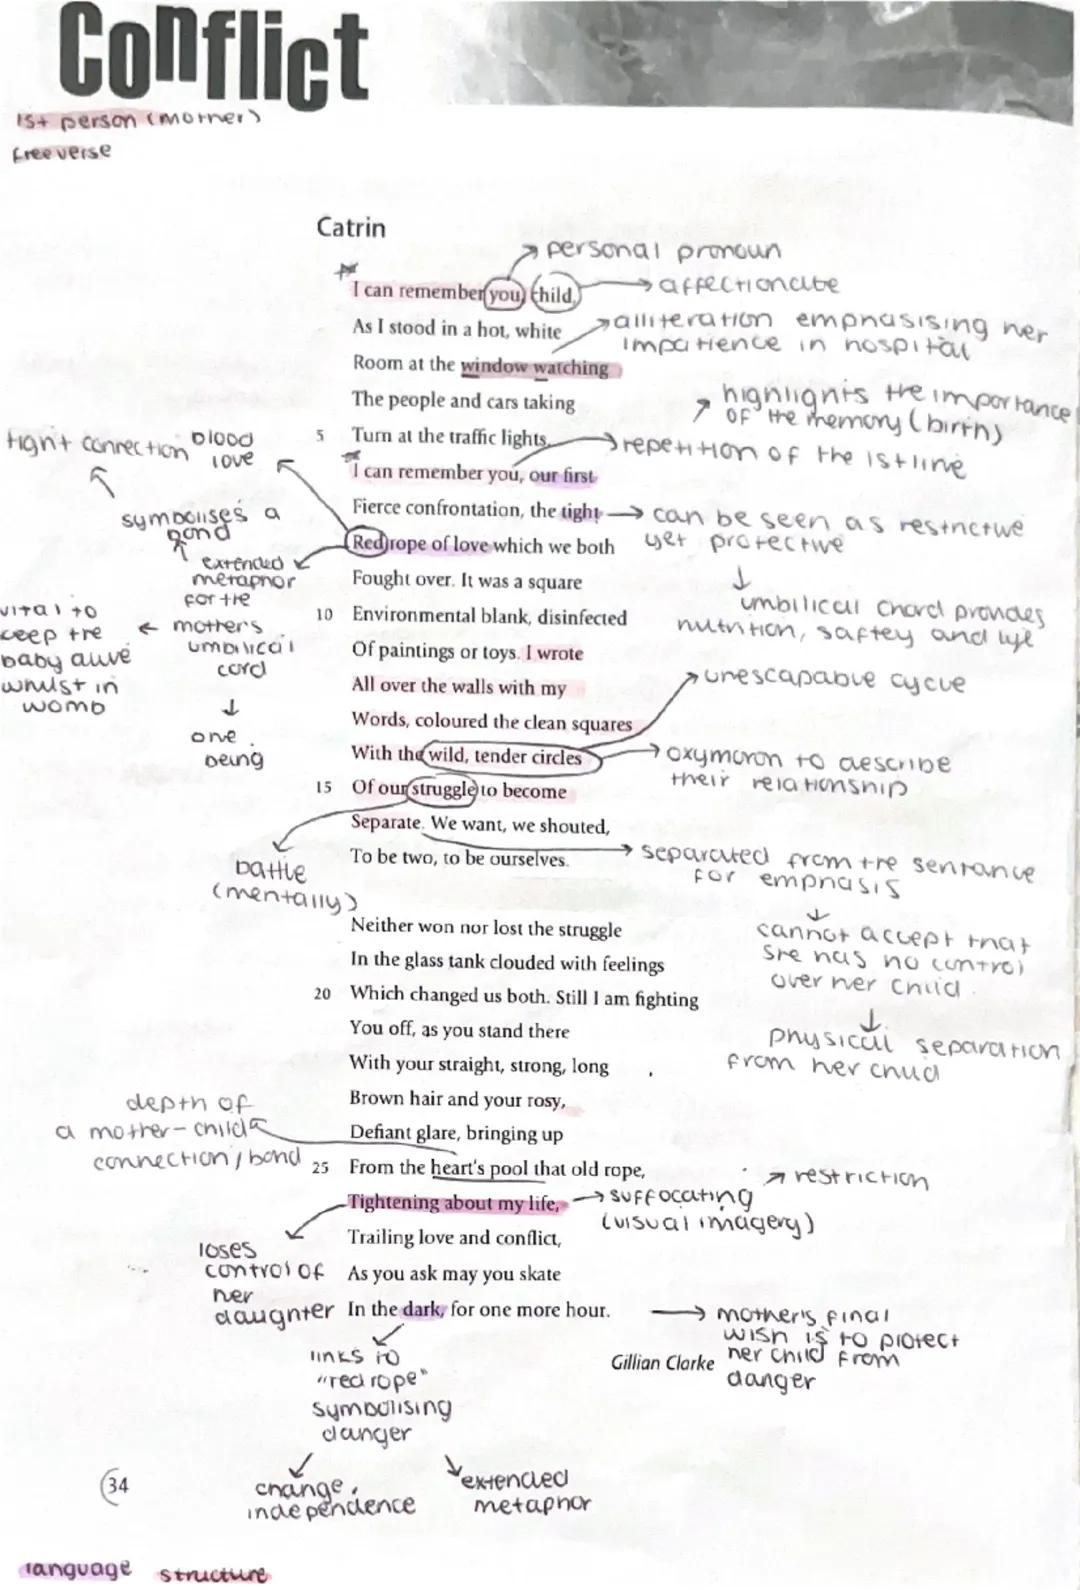 Conflict
1st person (mother)
free verse
Catrin
personal pronoun
I can remember you, child,
affectionate
As I stood in a hot, white
alliteration emphasising her
impatience in hospital
Room at the window watching
The people and cars taking
highlights the importance
of the memory (birth)
5 Turn at the traffic lights.
repetition of the 1st line
I can remember you, our first
Fierce confrontation, the tight
can be seen as restrictive
yet protective
Red rope of love which we both
umbilical chord provides
nutrition, saftey and life
tight connection
blood
love
symbolises a
bond
extended
metaphor
for the
mother's
umbilical
cord
vital to
keep the
baby alive
whilst in
womb
one
being
Fought over. It was a square
10 Environmental blank, disinfected
Of paintings or toys. I wrote
All over the walls with my
unescapable cycle
Words, coloured the clean squares
With the wild, tender circles
oxymoron to describe
their relationship
15 Of our struggle to become
Separate. We want, we shouted,
To be two, to be ourselves.
battle
(mentally)
separated from the sentance
for emphasis
cannot accept that
she has no control
over her child
physical separation
from her child
Neither won nor lost the struggle
In the glass tank clouded with feelings
20 Which changed us both. Still I am fighting
You off, as you stand there
With your straight, strong, long
Brown hair and your rosy,
Defiant glare, bringing up
depth of
a mother-child
connection/bond
25 From the heart's pool that old rope,
restriction
Tightening about my life,
suffocating
(visual imagery)
Trailing love and conflict,
loses
control of
her
daughter
As you ask may you skate
In the dark, for one more hour.
mother's final
wish is to protect
her child from
danger
Gillian Clarke
links to
"red rope"
symbolising
danger
change,
independence
extended
metaphor
34
language structure